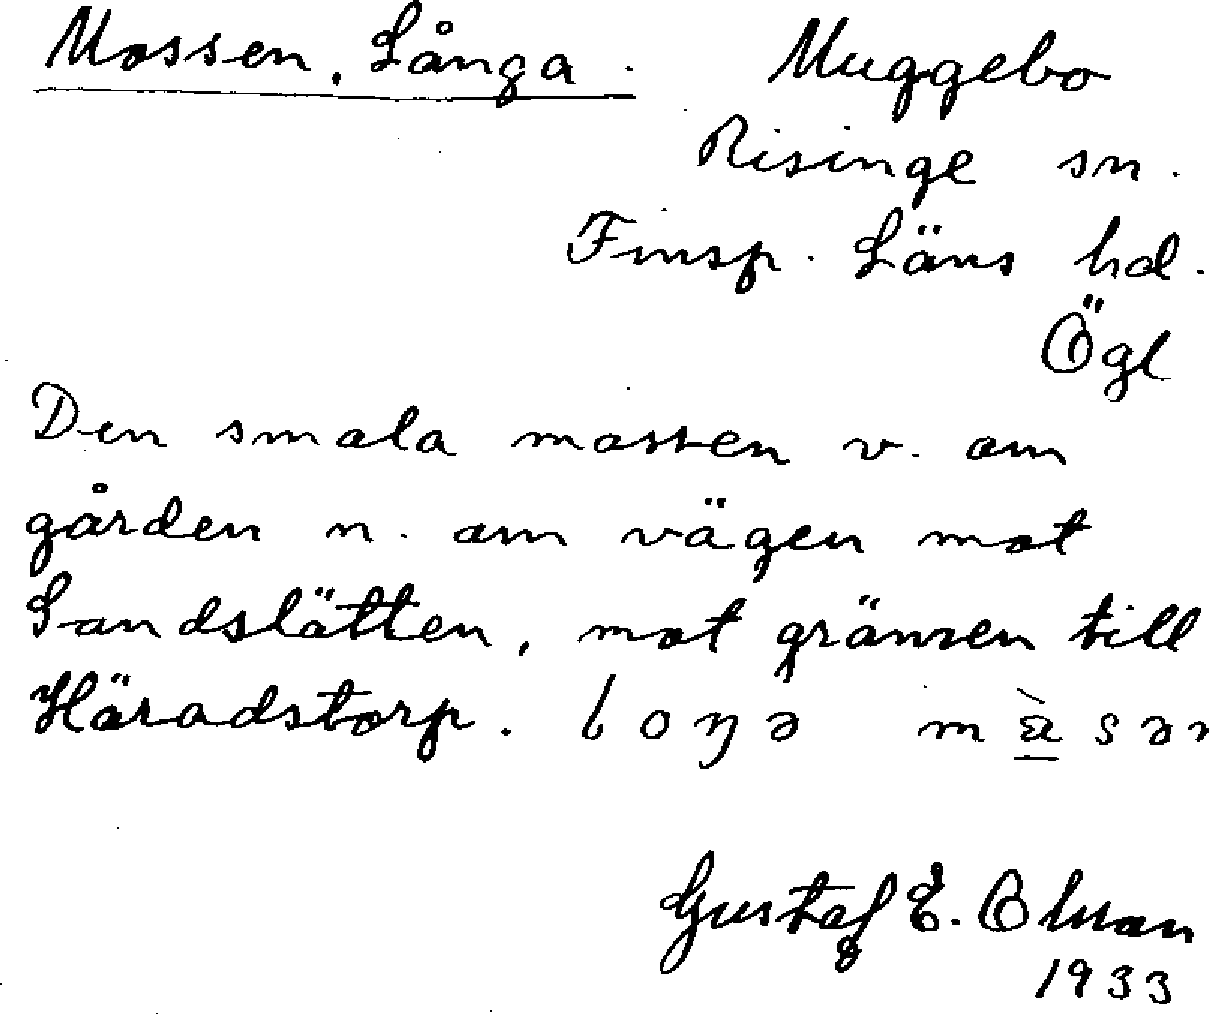 Mossen, Långa. Muggebo
Risinge sn.
Finsp. Läns hd.
Ögl
Den smala mossen v. om
gården n. om vägen mot
Sandslätten, mot gränsen till
Häradstorp. loŋə
Gustaf E. Olsson
1933